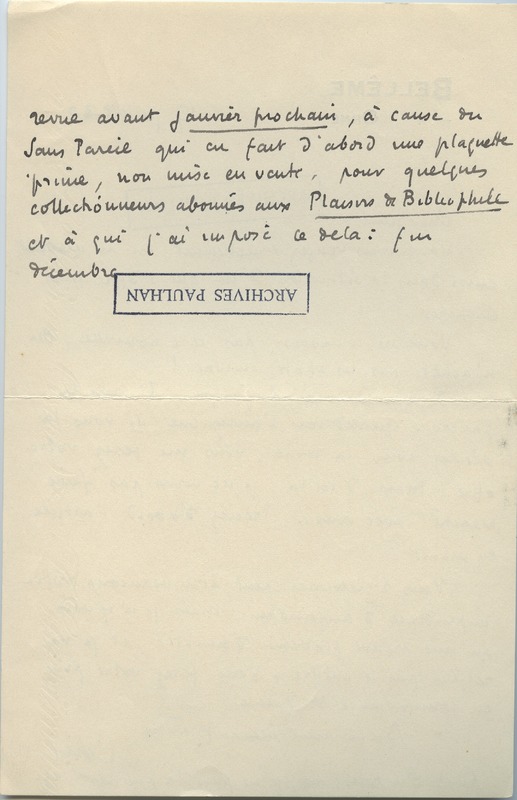 revue avant janvier prochain, à cause du
Sans Pareil qui en fait d'abord une plaquette
prime, non mise en vente, pour quelques
collectionneurs abonnés aux Plaisirs de Bibliophile
et à qui j'ai imposé ce delai: fin
décembre
ARCHIVES PAULHAN